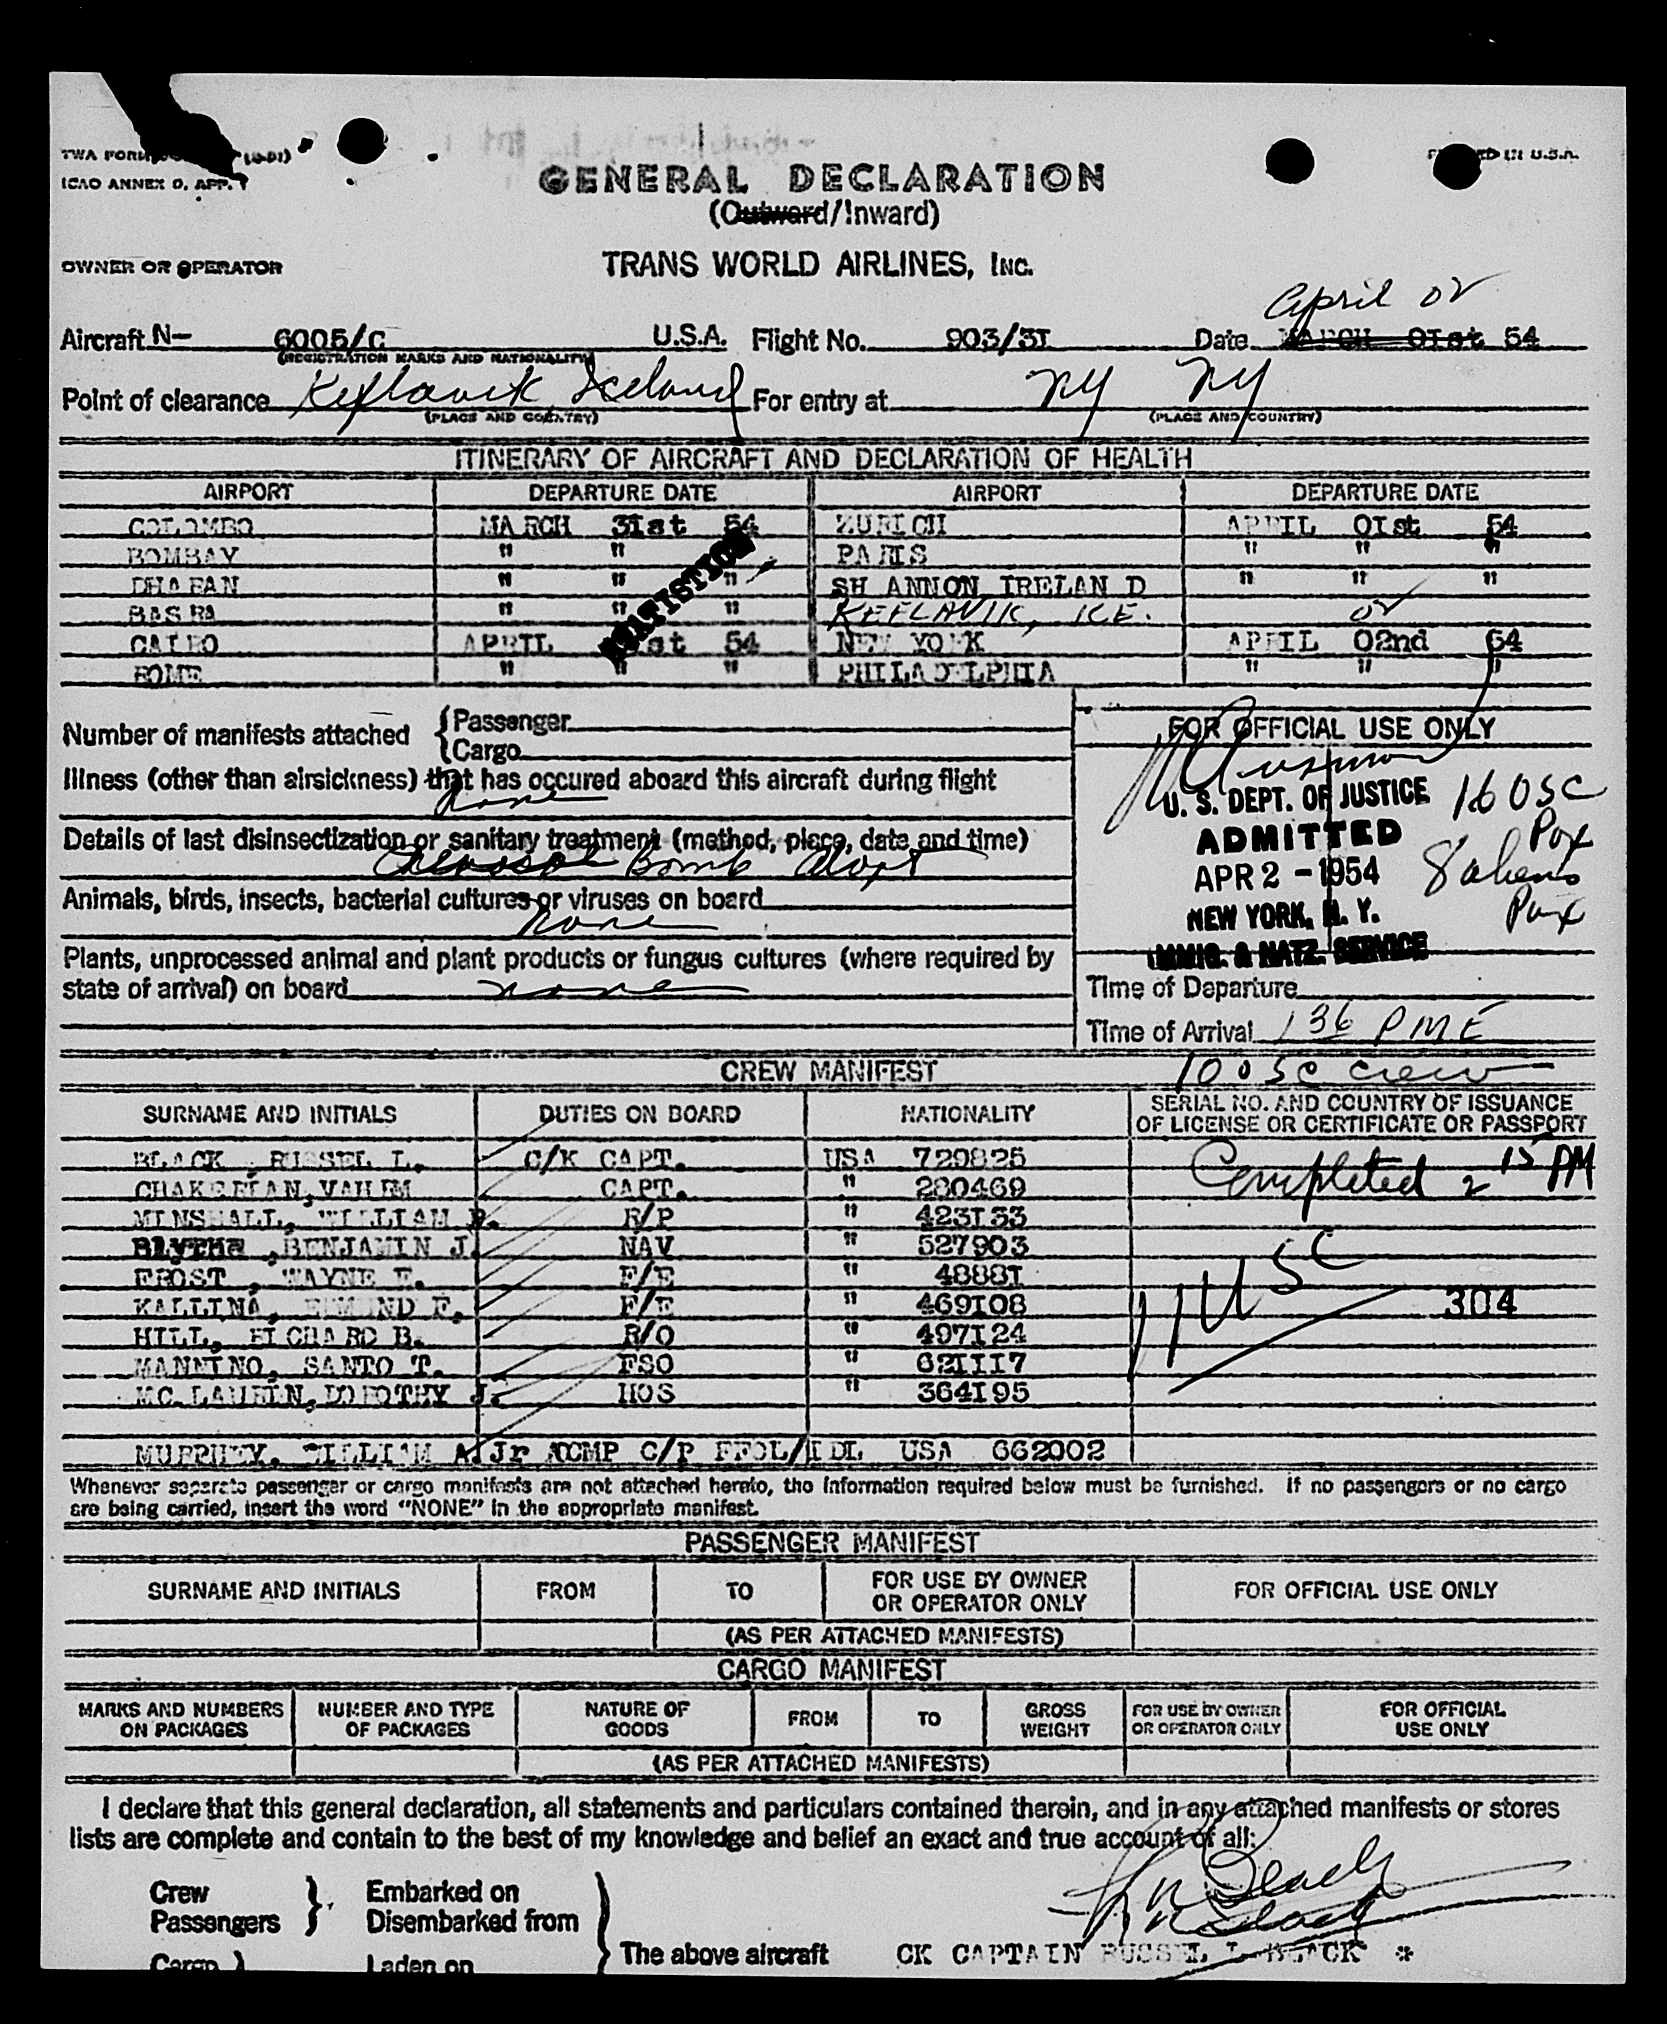 TWA FORM (5-51)
ICAO ANNEX 9, APP. 1
GENERAL DECLARATION
(Outward/Inward)
OWNER OR OPERATOR TRANS WORLD AIRLINES, INC.
April 02
Aircraft N- 6005/C U.S.A. Flight No. 903/3I Date MARCH 0Ist 54
(REGISTRATION MARKS AND NATIONALITY)
Point of clearance Keflavik Iceland For entry at NY NY
(PLACE AND COUNTRY) (PLACE AND COUNTRY)
ITINERARY OF AIRCRAFT AND DECLARATION OF HEALTH
AIRPORT DEPARTURE DATE AIRPORT DEPARTURE DATE
COLOMBO MARCH 3Ist 54 ZURICH APRIL 0Ist 54
BOMBAY " " PARIS " " "
DHARAN " " " SHANNON IRELAND " " "
BASRA " " " KEFLAVIK, ICE. 02
CAIRO APRIL st 54 NEW YORK APRIL 02nd 54
ROME " " " PHILADELPHIA " " "
STATISTICS
Number of manifests attached { Passenger
Cargo
FOR OFFICIAL USE ONLY
Illness (other than airsickness) that has occured aboard this aircraft during flight
none
U. S. DEPT. OF JUSTICE
ADMITTED
APR 2 - 1954
NEW YORK, N. Y.
IMMIG. & NATZ. SERVICE
16 USC
Pax
8 aliens
Pax
Details of last disinsectization or sanitary treatment (method, place, date and time)
Aerosol Bomb
Animals, birds, insects, bacterial cultures or viruses on board
none
Plants, unprocessed animal and plant products or fungus cultures (where required by
state of arrival) on board none
Time of Departure
Time of Arrival 1 36 PM E
CREW MANIFEST 10 USC Crew
SURNAME AND INITIALS DUTIES ON BOARD NATIONALITY SERIAL NO. AND COUNTRY OF ISSUANCE
OF LICENSE OR CERTIFICATE OR PASSPORT
BLACK, RUSSEL L. C/K CAPT. USA 729825
Completed 2 15 PM
CHAKERIAN, VAHEM CAPT. " 280469
MINSHALL, WILLIAM P. R/P " 423I33
Blythe, BENJAMIN J. NAV " 527903
FROST, WAYNE E. F/E " 4888I
KALLINA, EDMUND F. F/E " 469I08
11 USC
304
HILL, RICHARD B. R/O " 497I24
MANNINO, SANTO T. FSO " 62III7
MC LAURIN, DOROTHY J. HOS " 364I95
MURPHEY, WILLIAM A. Jr ACMP C/P FFOL/IDL USA 662002
Whenever separate passenger or cargo manifests are not attached hereto, the information required below must be furnished. If no passengers or no cargo
are being carried, insert the word "NONE" in the appropriate manifest.
PASSENGER MANIFEST
SURNAME AND INITIALS FROM TO FOR USE BY OWNER
OR OPERATOR ONLY FOR OFFICIAL USE ONLY
(AS PER ATTACHED MANIFESTS)
CARGO MANIFEST
MARKS AND NUMBERS
ON PACKAGES NUMBER AND TYPE
OF PACKAGES NATURE OF
GOODS FROM TO GROSS
WEIGHT FOR USE BY OWNER
OR OPERATOR ONLY FOR OFFICIAL
USE ONLY
(AS PER ATTACHED MANIFESTS)
I declare that this general declaration, all statements and particulars contained therein, and in any attached manifests or stores
lists are complete and contain to the best of my knowledge and belief an exact and true account of all:
Crew
Passengers } Embarked on
Disembarked from
Cargo } Laden on
The above aircraft CK CAPTAIN RUSSEL L BLACK *